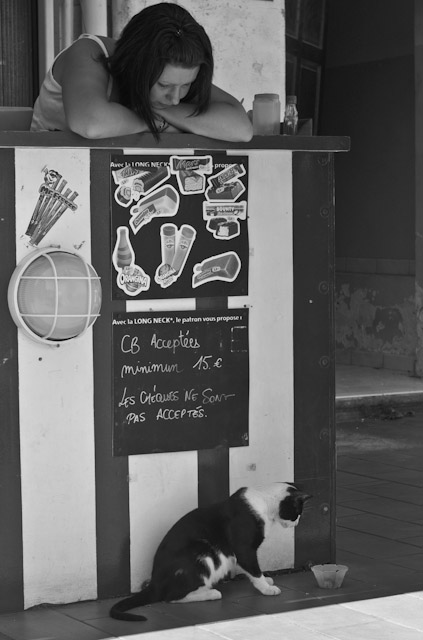 Avec la LONG NECK
propo
MARS
BOUNTY
ORANGINA
Avec la LONG NECK*, le patron vous propose :
CB Acceptées
minimum 15.€
LES CHÈQUES NE SONT
PAS ACCEPTÉS.